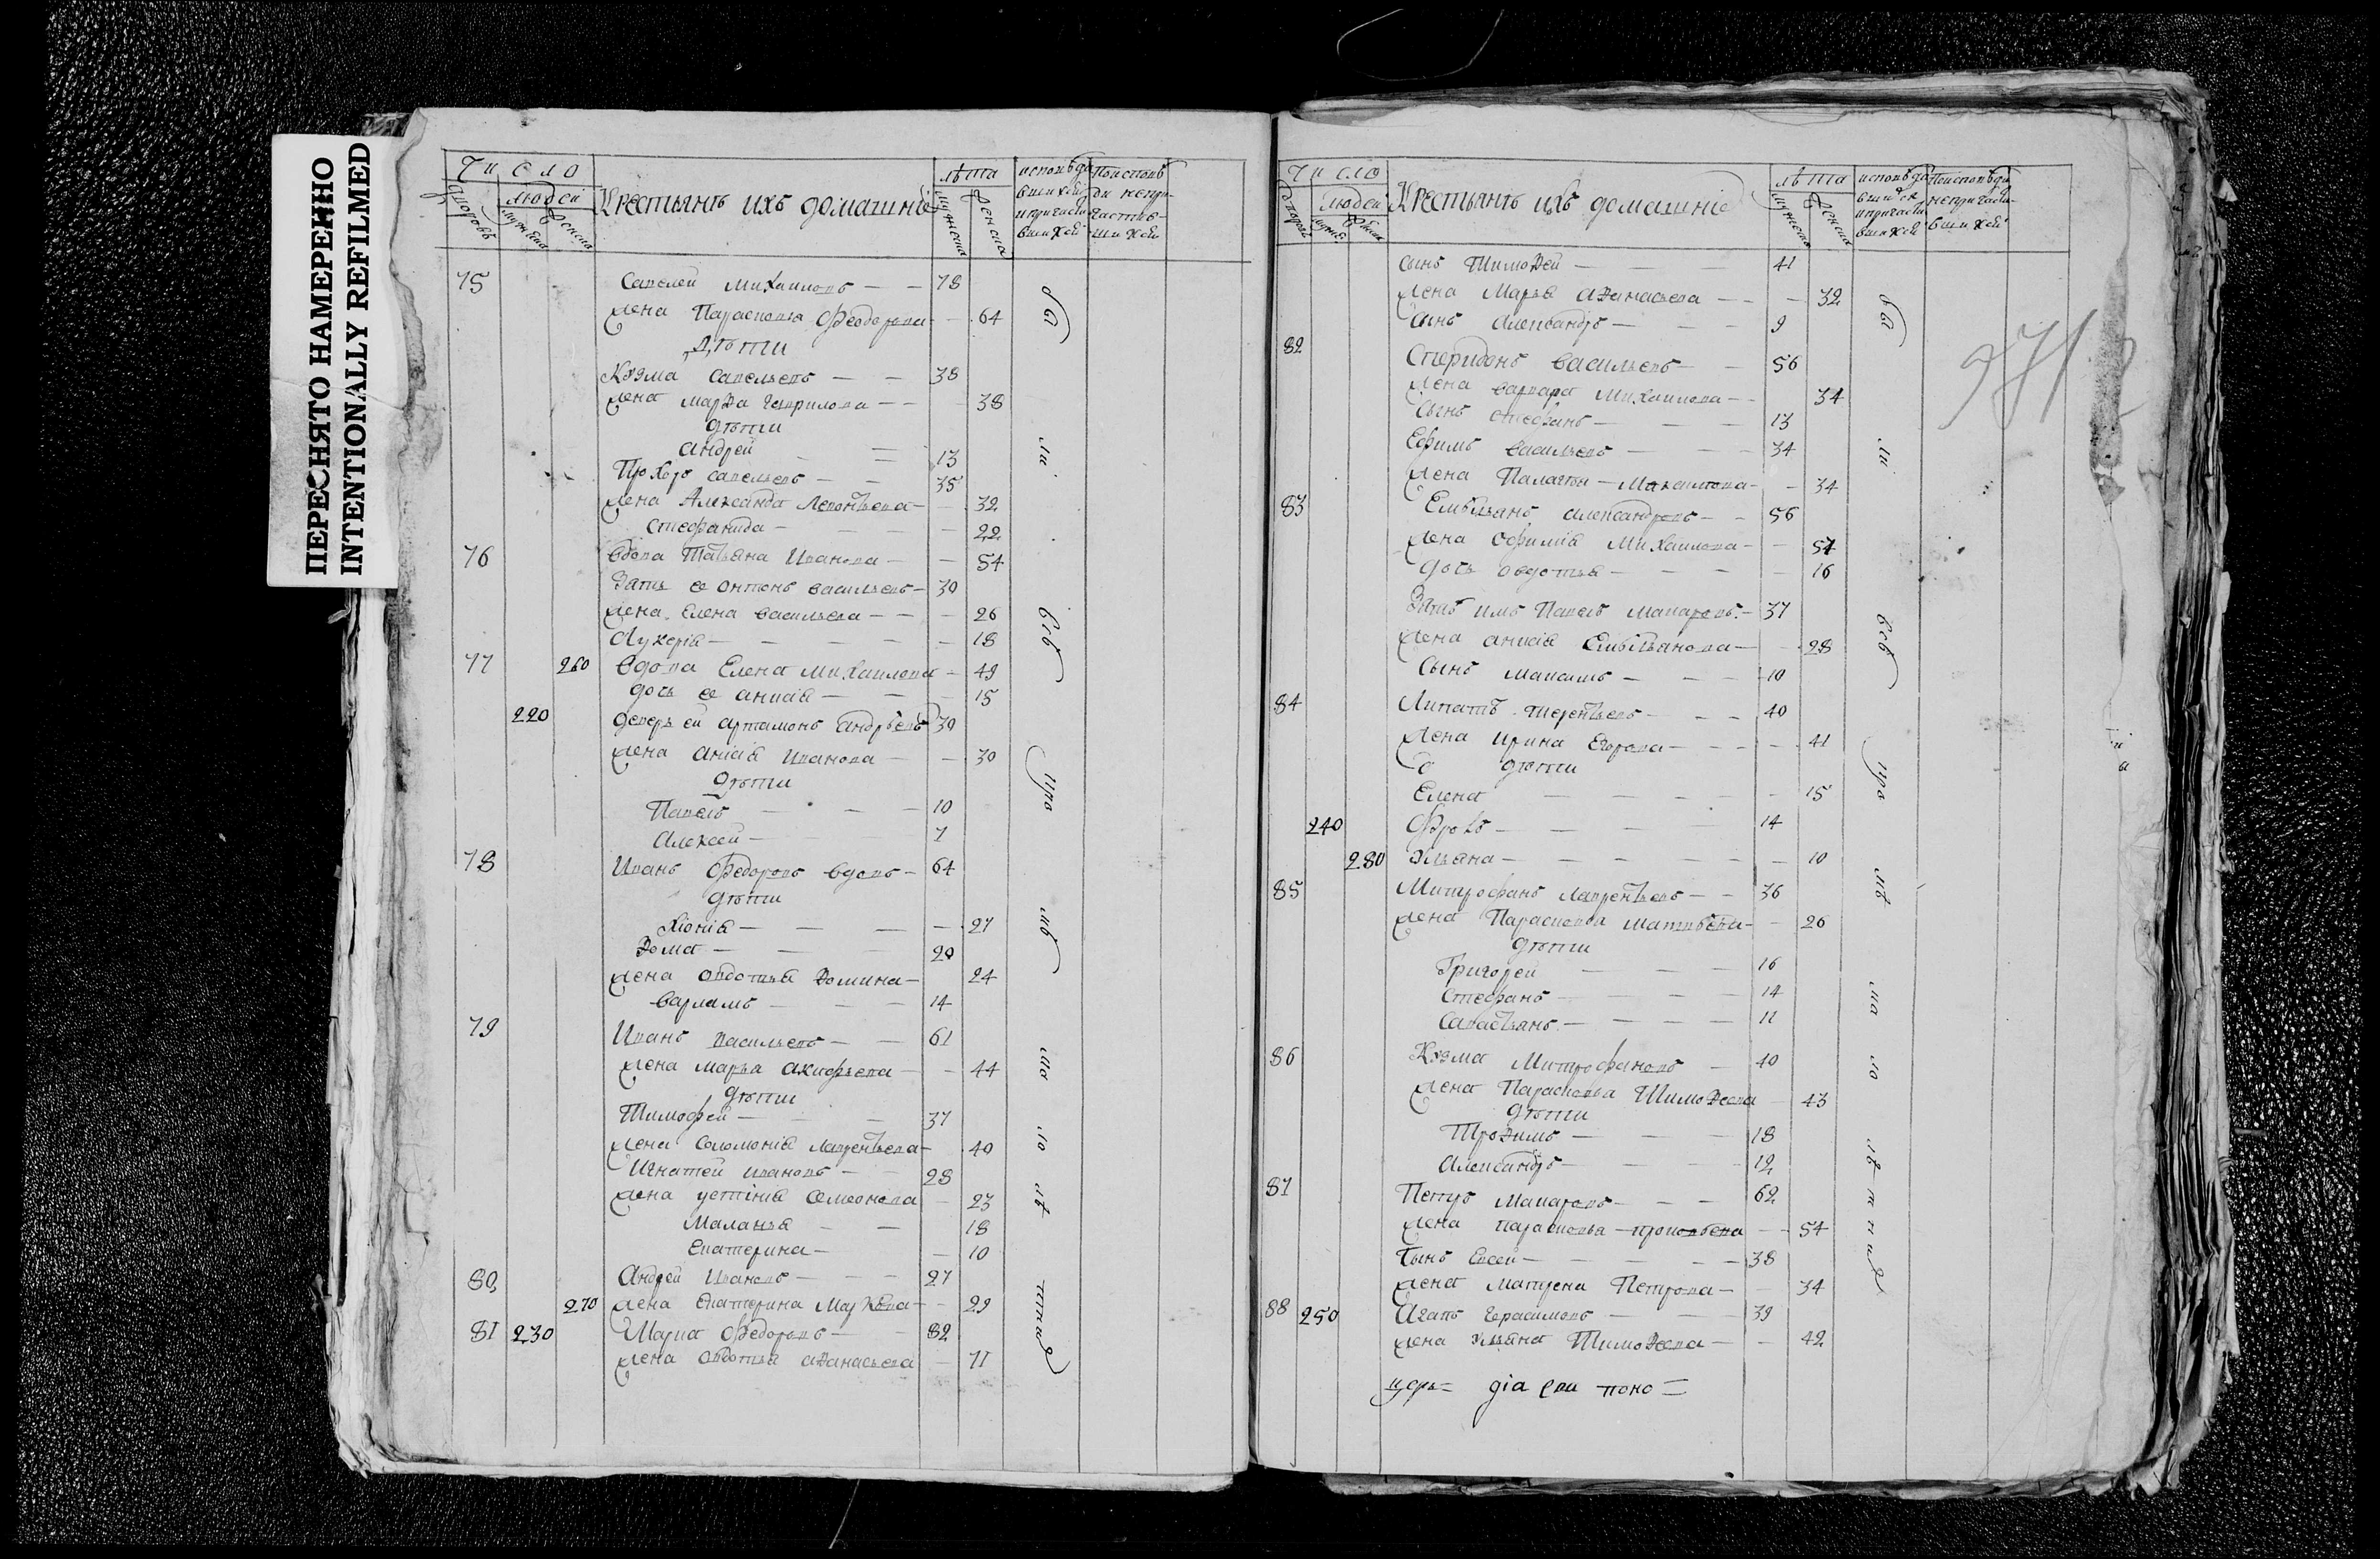 ПЕРЕСНЯТО НАМЕРЕННО
INTENTIONALLY REFILMED
Число
дворовъ
людей
мужеска
женска
крестьянъ ихъ домашніе
лѣта
мужеска
женска
75 Савелей Михаиловъ — — 78
жена Парасковья Феодорова — 64
Дѣти
Козма Савельевъ — — 38
жена Марѳа Гаврилова — — 38
дѣти
Андрей — 13
Прохоръ Савельевъ — — 35
жена Александа Леонтьева — 32
Стефанида — 22
76 вдова Татьяна Иванова — — 54
Зять ее Онтонъ Васильевъ — 30
жена Елена Васильева — — 26
Лукерія — — 18
77 260 вдова Елена Михаилова — 49
дочь ее Анисія — — 15
220 деверь ей Артамонъ Андрѣевъ 39
жена Анісія Иванова — — 30
дѣти
Павелъ — — 10
Алексей — 7
78 Иванъ Федоровъ вдовъ — 64
дѣти
Хіонія — — — 27
Ѳома — — 29
жена Овдотья Ѳомина — 24
Варламъ — — 14
79 Иванъ Васильевъ — — 61
жена Марья Акиѳьева — — 44
дѣти
Тимофей — — 37
жена Соломонія Лаврентьева — 40
Игнатей Ивановъ — 28
жена Устинія Семеонова — 23
Маланья — — 18
Екатерина — — 10
80 Андрей Ивановъ — — 27
270 жена Екатерина Маркова — 29
81 230 Федоровъ — — 82
жена Овдотья Аѳанасьева — 71
бы
ли
всѣ
Число
людей
крестьянъ ихъ домашніе
лѣта
мужеска
женска
сынъ Тимоѳей — — — 41
жена Марья Аѳанасьева — — 32
сынъ Александръ — — — 9
82 Спиридонъ Васильевъ — — 56
жена Варвара Михаилова — — 34
сынъ Стефанъ — — — 13
Ефимъ Васильевъ — — — 34
жена Палагъя — Максимова — — 34
83 Емѣльянъ Александровъ — — 56
жена Офимія Михаилова — — 54
дочь Овдотья — — — — 16
Зять имъ Павелъ Макаровъ — 37
жена Анисія Емѣльянова — — 28
сынъ Максимъ — — — 10
84 Липатъ Терентьевъ — — — 40
жена Ирина Егорова — — — 41
дѣти
Елена — — — — 15
240 Фролъ — — — — 14
280 Ульяна — — — — 10
85 Митрофанъ Лаврентьевъ — — 36
жена Парасковья Матвѣева — — 26
дѣти
Григорей — — — 16
Стефанъ — — — — 14
Савастьянъ — — — — 11
86 Козма Митрофановъ — 40
жена Парасковья Тимоѳеева — 43
дѣти
Троѳимъ — — — 18
Александръ — — — 12
87 Петръ Макаровъ — — — 62
жена Парасковья — Прокоѳьева — — 54
Сынъ Евсей — — — — 38
жена Матрена Петрова — — 34
88 250 Агапъ Герасимовъ — — — 39
жена Ульяна Тимоѳеева — — 42
бы
ли
всѣ